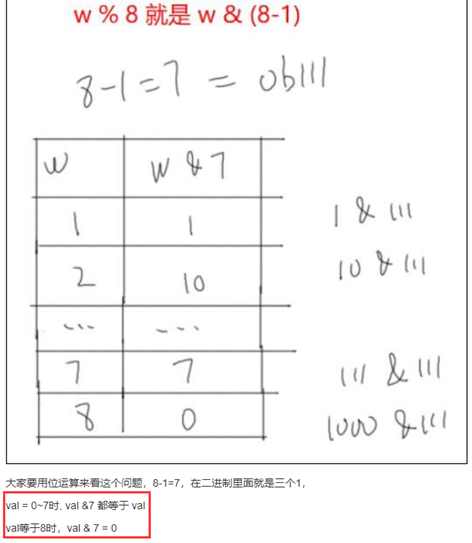 w % 8 就是 w & (8-1)
8-1=7 = 0b111
w w & 7
1 1 1 & 111
2 10 10 & 111
... ...
7 7 111 & 111
8 0 1000 & 111
大家要用位运算来看这个问题，8-1=7，在二进制里面就是三个1，
val = 0~7时, val &7 都等于 val
val等于8时，val & 7 = 0